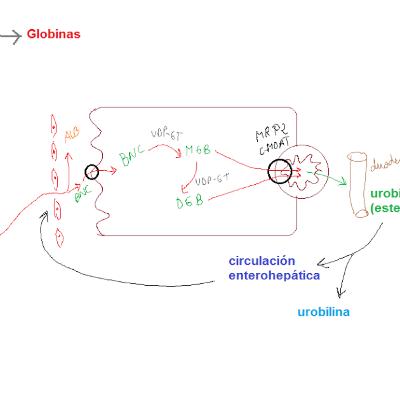 Globinas
Alb
UDP-GT
MRP2
CMOAT
BNC
MGB
BNC
UDP-GT
DGB
duode
urobi
(este
circulación
enterohepática
urobilina